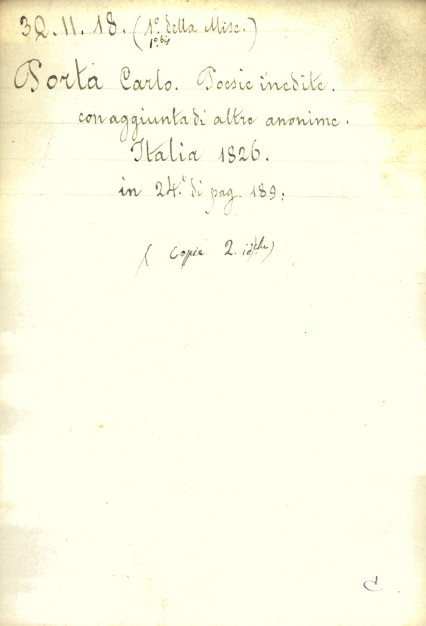 32.11.18. (1° della Misc.)
1° bis
Porta Carlo. Poesie inedite.
con aggiunta di altre anonime.
Italia 1826.
in 24.° di pag. 189.
( Copie 2. id.che)
C